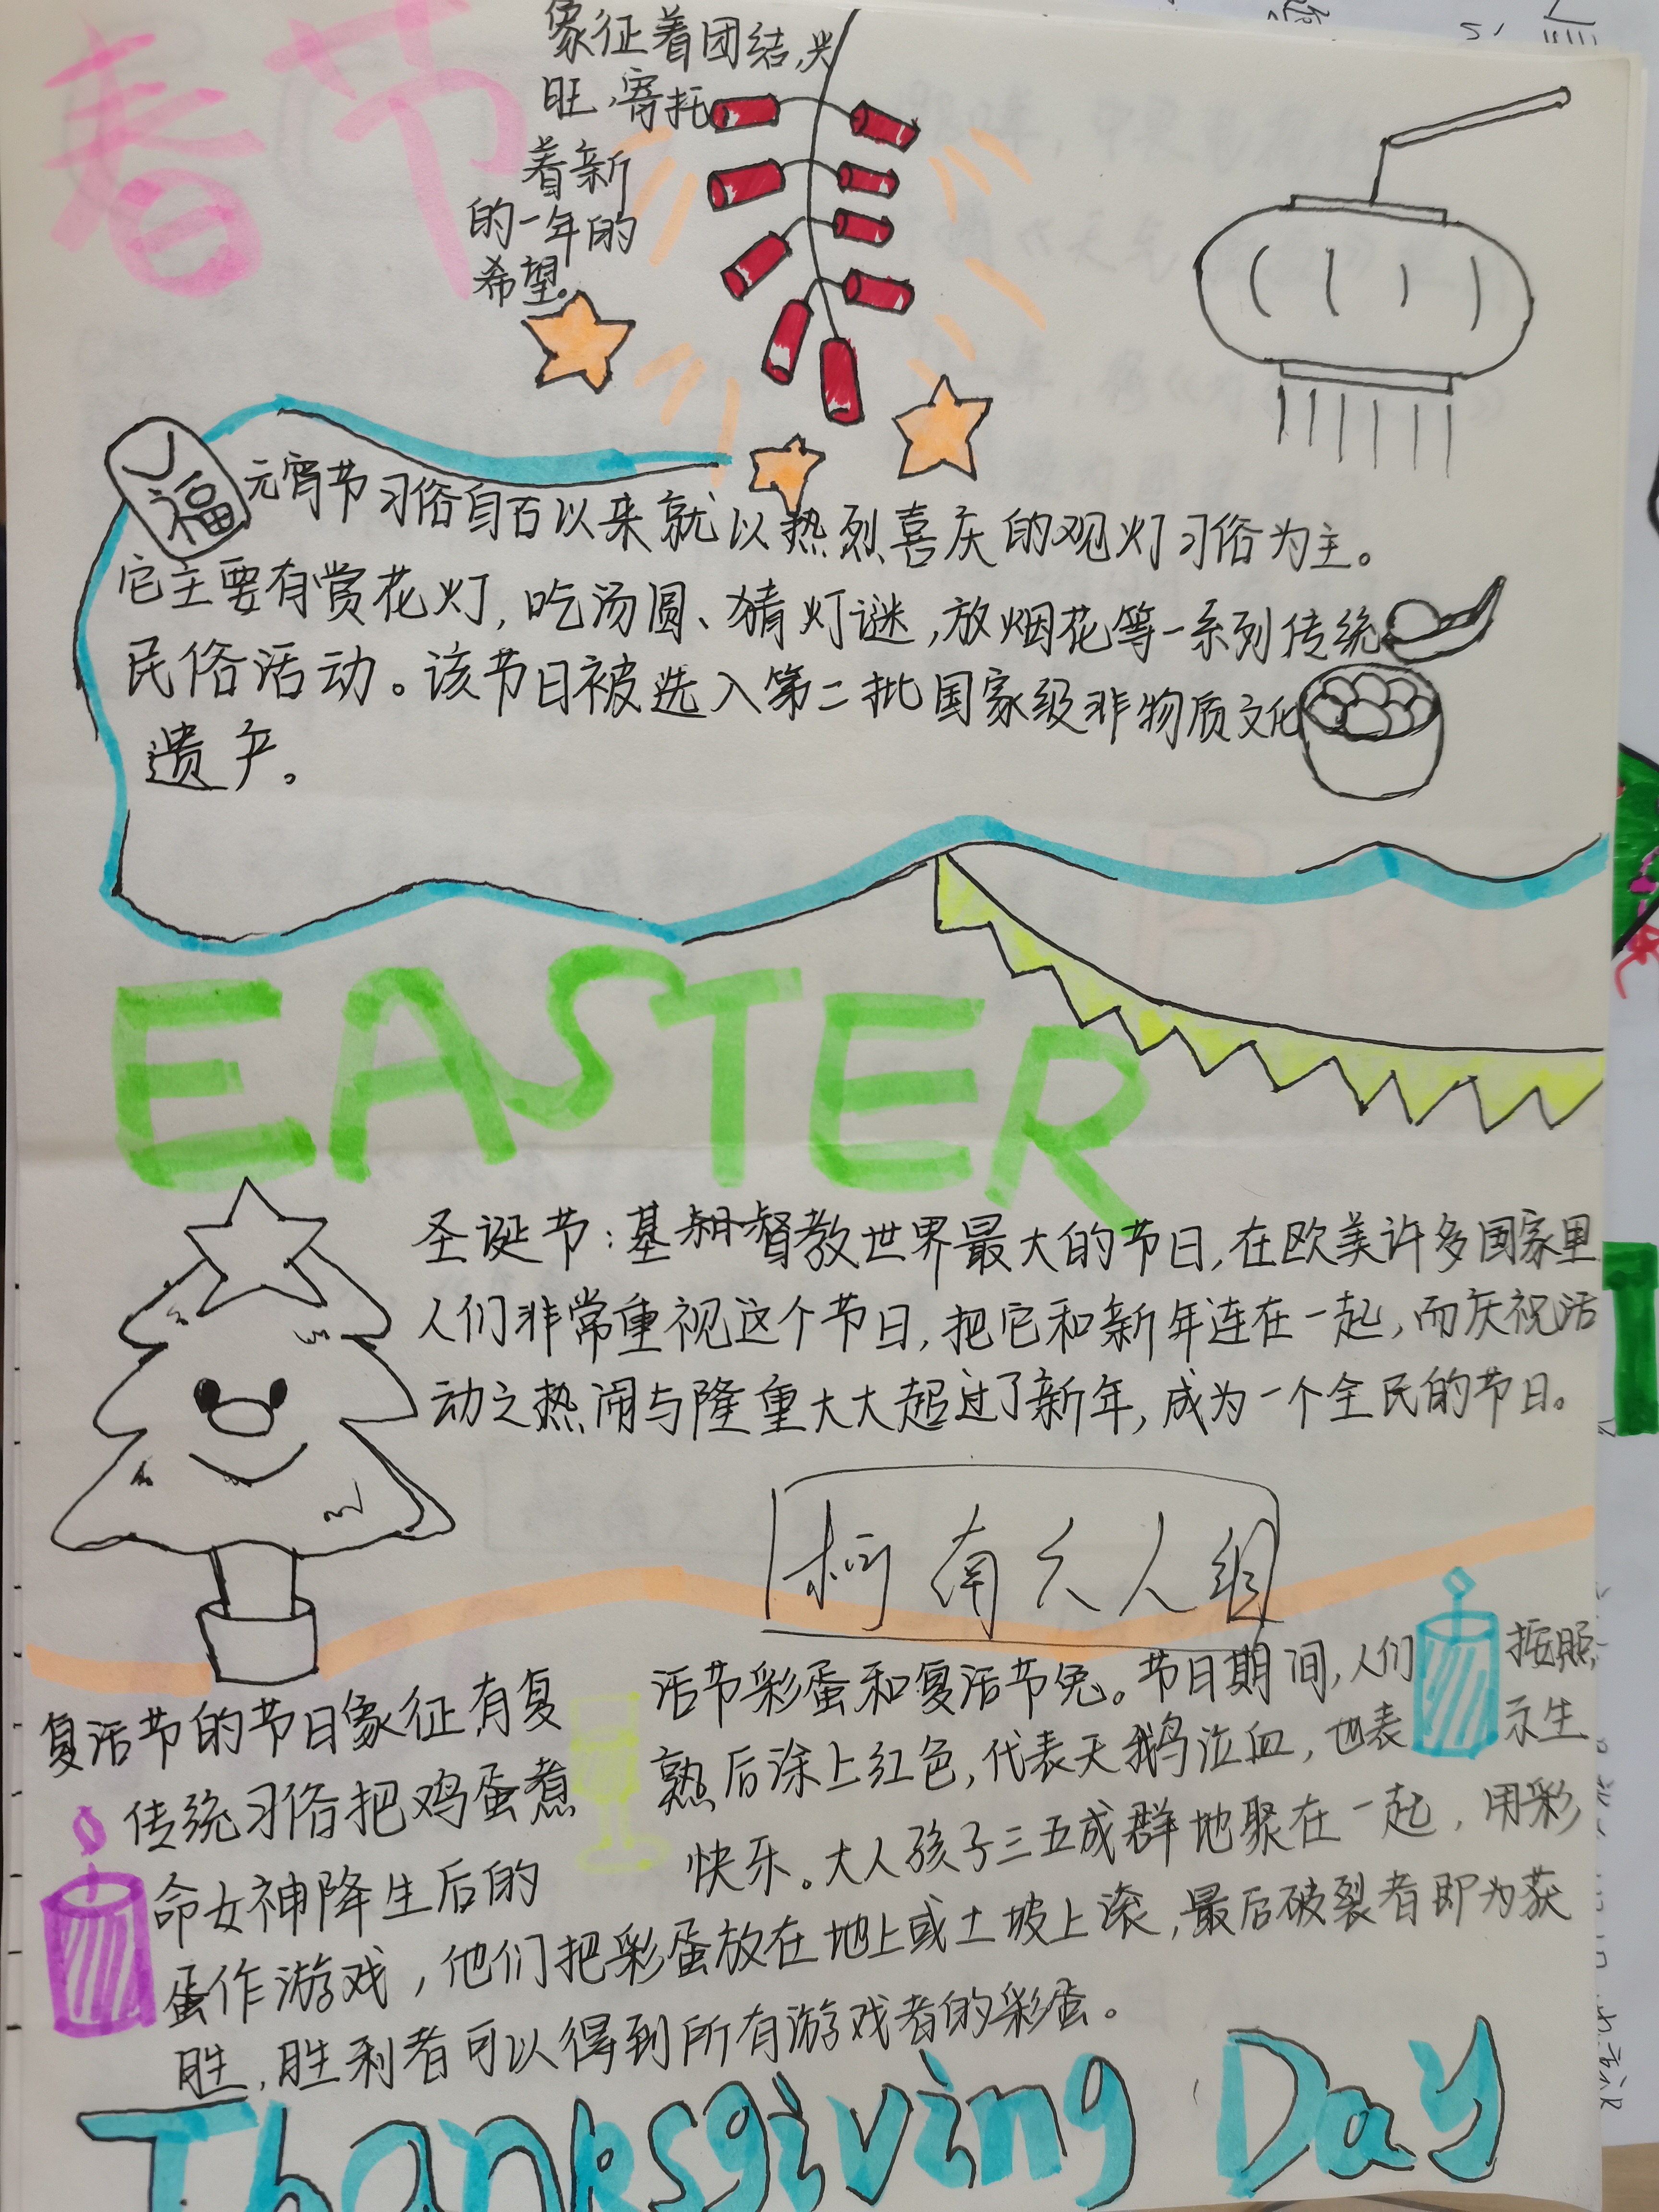 春节
象征着团结,兴
旺,寄托
着新
的一年的
希望。
福
元宵节习俗自古以来就以热烈喜庆的观灯习俗为主。
它主要有赏花灯,吃汤圆、猜灯谜,放烟花等一系列传统
民俗活动。该节日被选入第二批国家级非物质文化
遗产。
EASTER
圣诞节:基督教世界最大的节日,在欧美许多国家里
人们非常重视这个节日,把它和新年连在一起,而庆祝活
动之热闹与隆重大大超过了新年,成为一个全民的节日。
柯南六人组
复活节的节日象征有复活节彩蛋和复活节兔。节日期间,人们按照
传统习俗把鸡蛋煮熟后涂上红色,代表天鹅泣血,也表示生
命女神降生后的快乐。大人孩子三五成群地聚在一起,用彩
蛋作游戏,他们把彩蛋放在地上或土坡上滚,最后破裂者即为获
胜,胜利者可以得到所有游戏者的彩蛋。
Thanksgiving Day